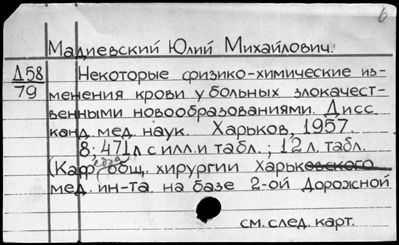 6
Мадиевский Юлий Михайлович.
Д58 Некоторые физико-химические из-
79 менения крови у больных злокачест-
венными новообразованиями. Дисс.
канд. мед. наук. Харьков, 1957.
8; 471л с илл. и табл.; 12 л. табл.
(Каф. общ. хирургии Харьковского
мед. ин-та на базе 2-ой Дорожной
см. след. карт.